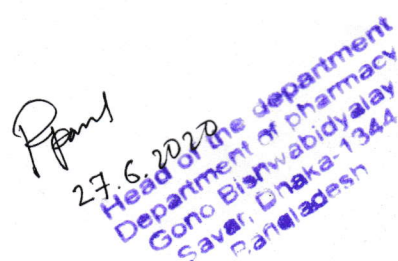 27.6.2020
Head of the department
Department of pharmacy
Gono Bishwabidyalay
Savar, Dhaka-1344
Bangladesh